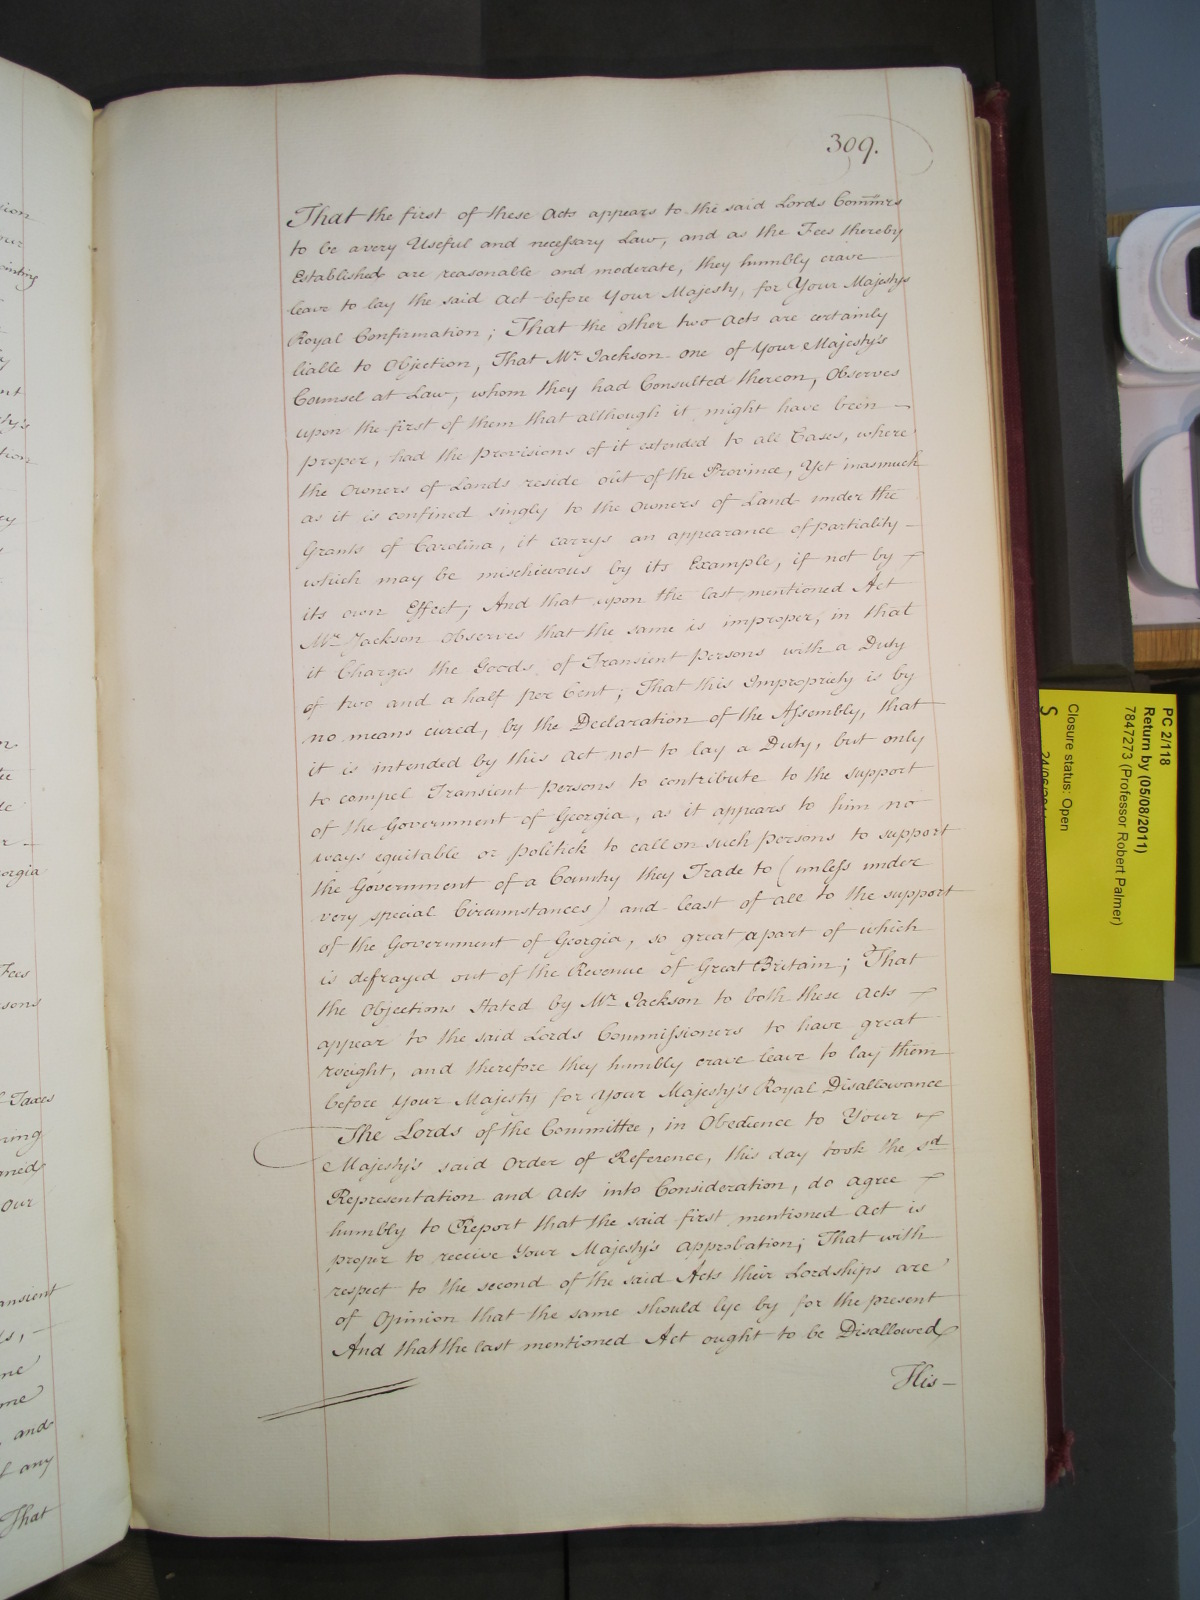 309.
That the first of these Acts appears to the said Lords Commrs
to be a very Useful and necessary Law, and as the Fees thereby
Established are reasonable and moderate, they humbly crave
leave to lay the said Act before Your Majesty, for Your Majestys
Royal Confirmation; That the other two Acts are certainly
liable to Objection, That Mr. Jackson one of Your Majesty's
Counsel at Law, whom they had Consulted thereon, Observes
upon the first of them that although it might have been —
proper, had the Provisions of it extended to all Cases, where
the Owners of Lands reside out of the Province, Yet inasmuch
as it is confined singly to the Owners of Land under the
Grants of Carolina, it carrys an appearance of partiality —
which may be mischievous by its Example, if not by
its own Effect; And that upon the last mentioned Act
Mr. Jackson Observes that the same is improper, in that
it Charges the Goods of Transient Persons with a Duty
of two and a half per Cent; That this Impropriety is by
no means cured, by the Declaration of the Assembly, that
it is intended by this Act not to lay a Duty, but only
to compel Transient Persons to contribute to the support
of the Government of Georgia, as it appears to him no
ways equitable or politick to call on such persons to support
the Government of a Country they Trade to (unless under
very special Circumstances) and least of all to the support
of the Government of Georgia, so great a part of which
is defrayed out of the Revenue of Great Britain; That
the Objections stated by Mr. Jackson to both these Acts
appear to the said Lords Commissioners to have great
weight, and therefore they humbly crave leave to lay them
before Your Majesty for Your Majesty's Royal Disallowance
The Lords of the Committee, in Obedience to Your
Majesty's said Order of Reference, this day took the sd
Representation and Acts into Consideration, do agree
humbly to Report that the said first mentioned Act is
proper to receive Your Majesty's Approbation; That with
respect to the second of the said Acts their Lordships are
of Opinion that the same should lye by for the present
And that the last mentioned Act ought to be Disallowed
His —
PC 2/118
Return by (05/08/2011)
7847273 (Professor Robert Palmer)
Closure status: Open
S
orgia
Fees
sons
Taxes
Our
ansient
and
any
That